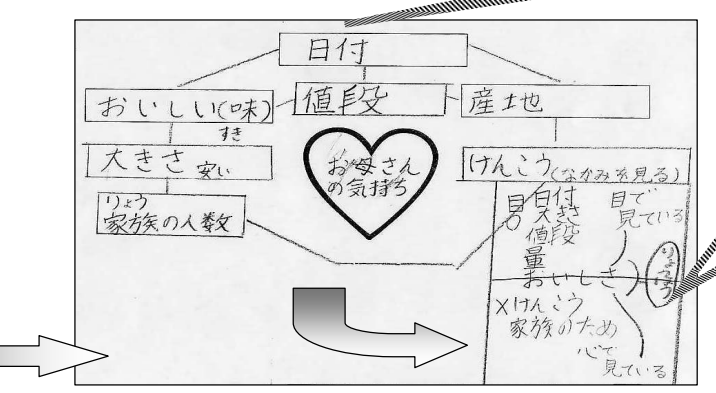 日付
おいしい(味)
値段
産地
すき
大きさ 安い
お母さん
の気持ち
けんこう(なかみを見る)
りょう
家族の人数
日付
目
大きさ
値段
量
おいしさ
目で
見ている
りょうほう
×けんこう
家族のため
心で
見ている